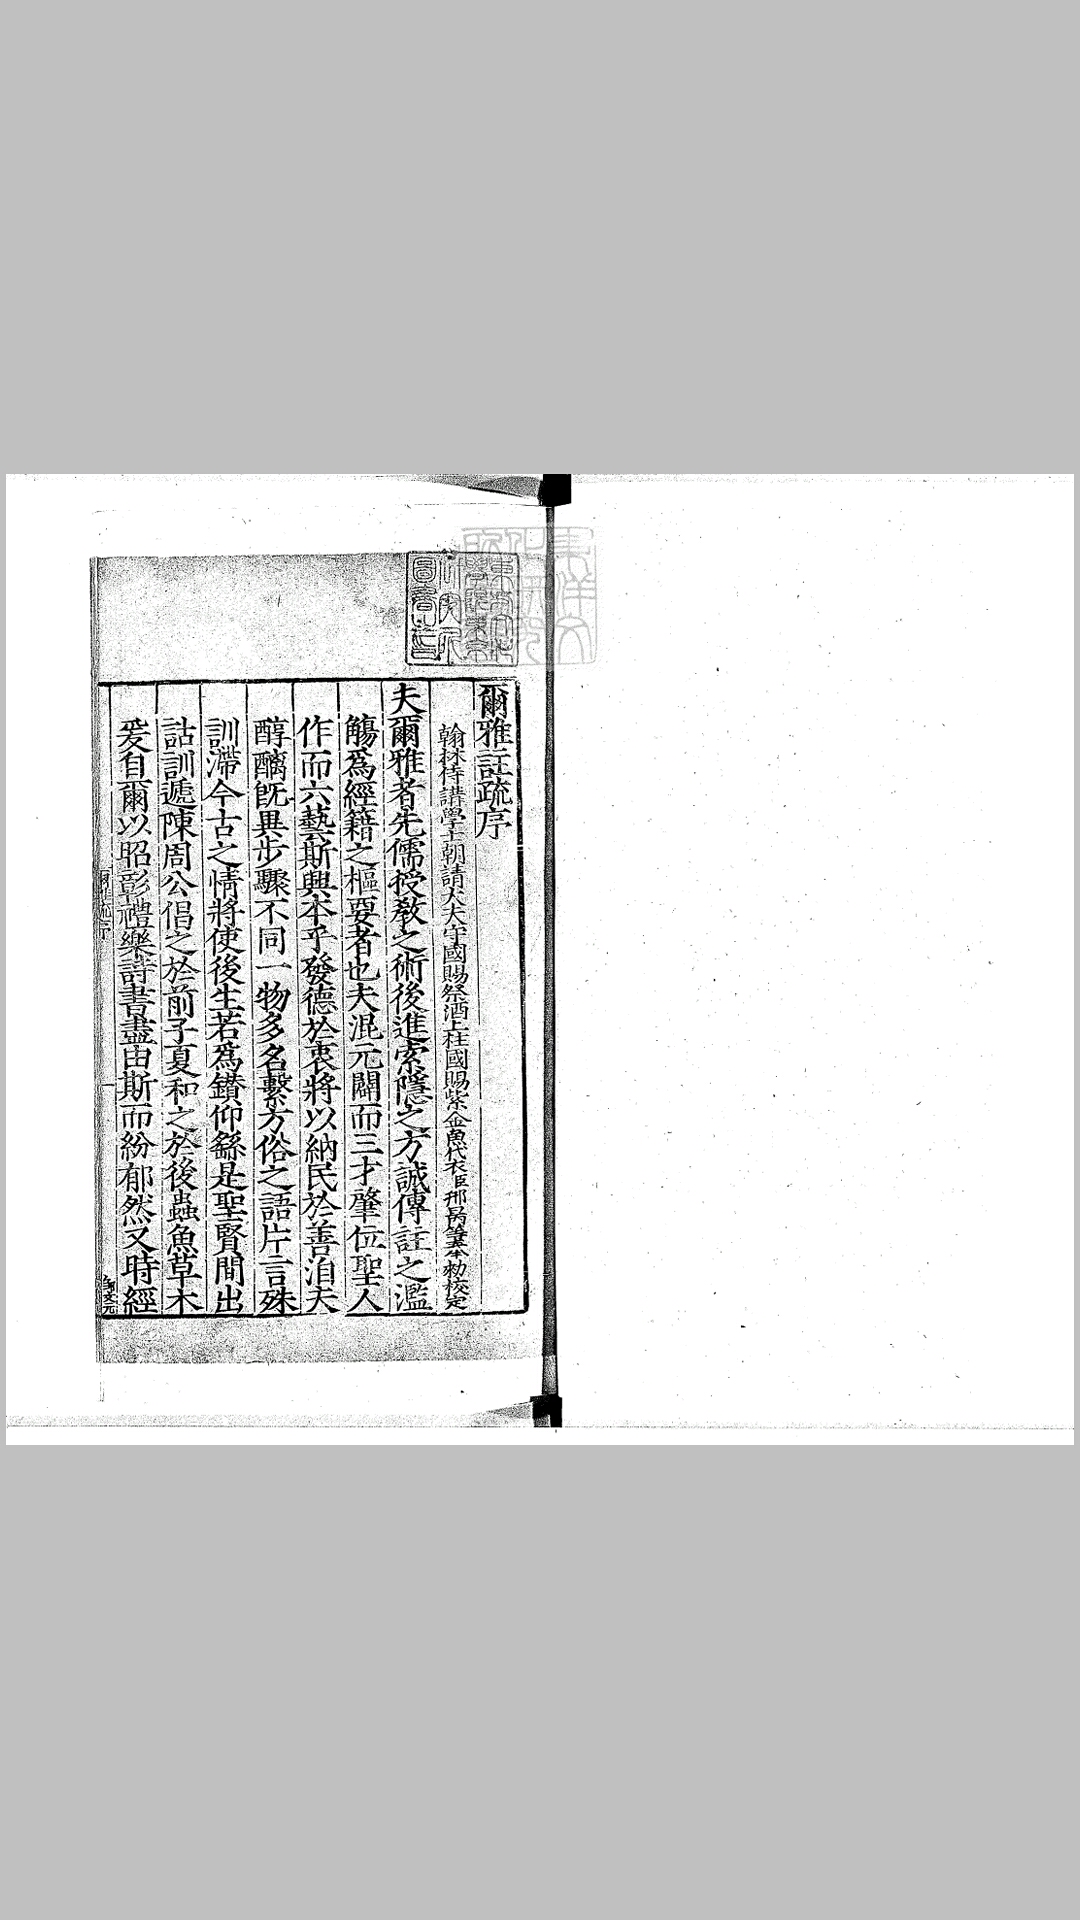 爾雅註疏序
翰林侍講學士朝請大夫守國賜祭酒上柱國賜紫金魚代衣臣邢昺等奉勑校定
夫爾雅者先儒授敎之術後進索隱之方誠傳註之濫
觴爲經籍之樞要者也夫混元闢而三才肇位聖人
作而六藝斯興本乎發德於衷將以納民於善洎夫
醇醨旣異步驟不同一物多名繫方俗之語片言殊
訓滯今古之情將使後生若爲鑚仰繇是聖賢間出
詁訓遞陳周公倡之於前子夏和之於後蟲魚草木
爰自爾以昭彰禮樂詩書盡由斯而紛郁然又時經